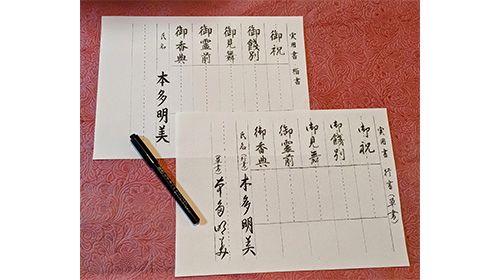 実用書 楷書
御祝
御餞別
御見舞
御霊前
御香典
氏名
本多明美
実用書 行書(草書)
御祝
御餞別
御見舞
御霊前
御香典
氏名(行書)
本多明美
(草書)
本多明美